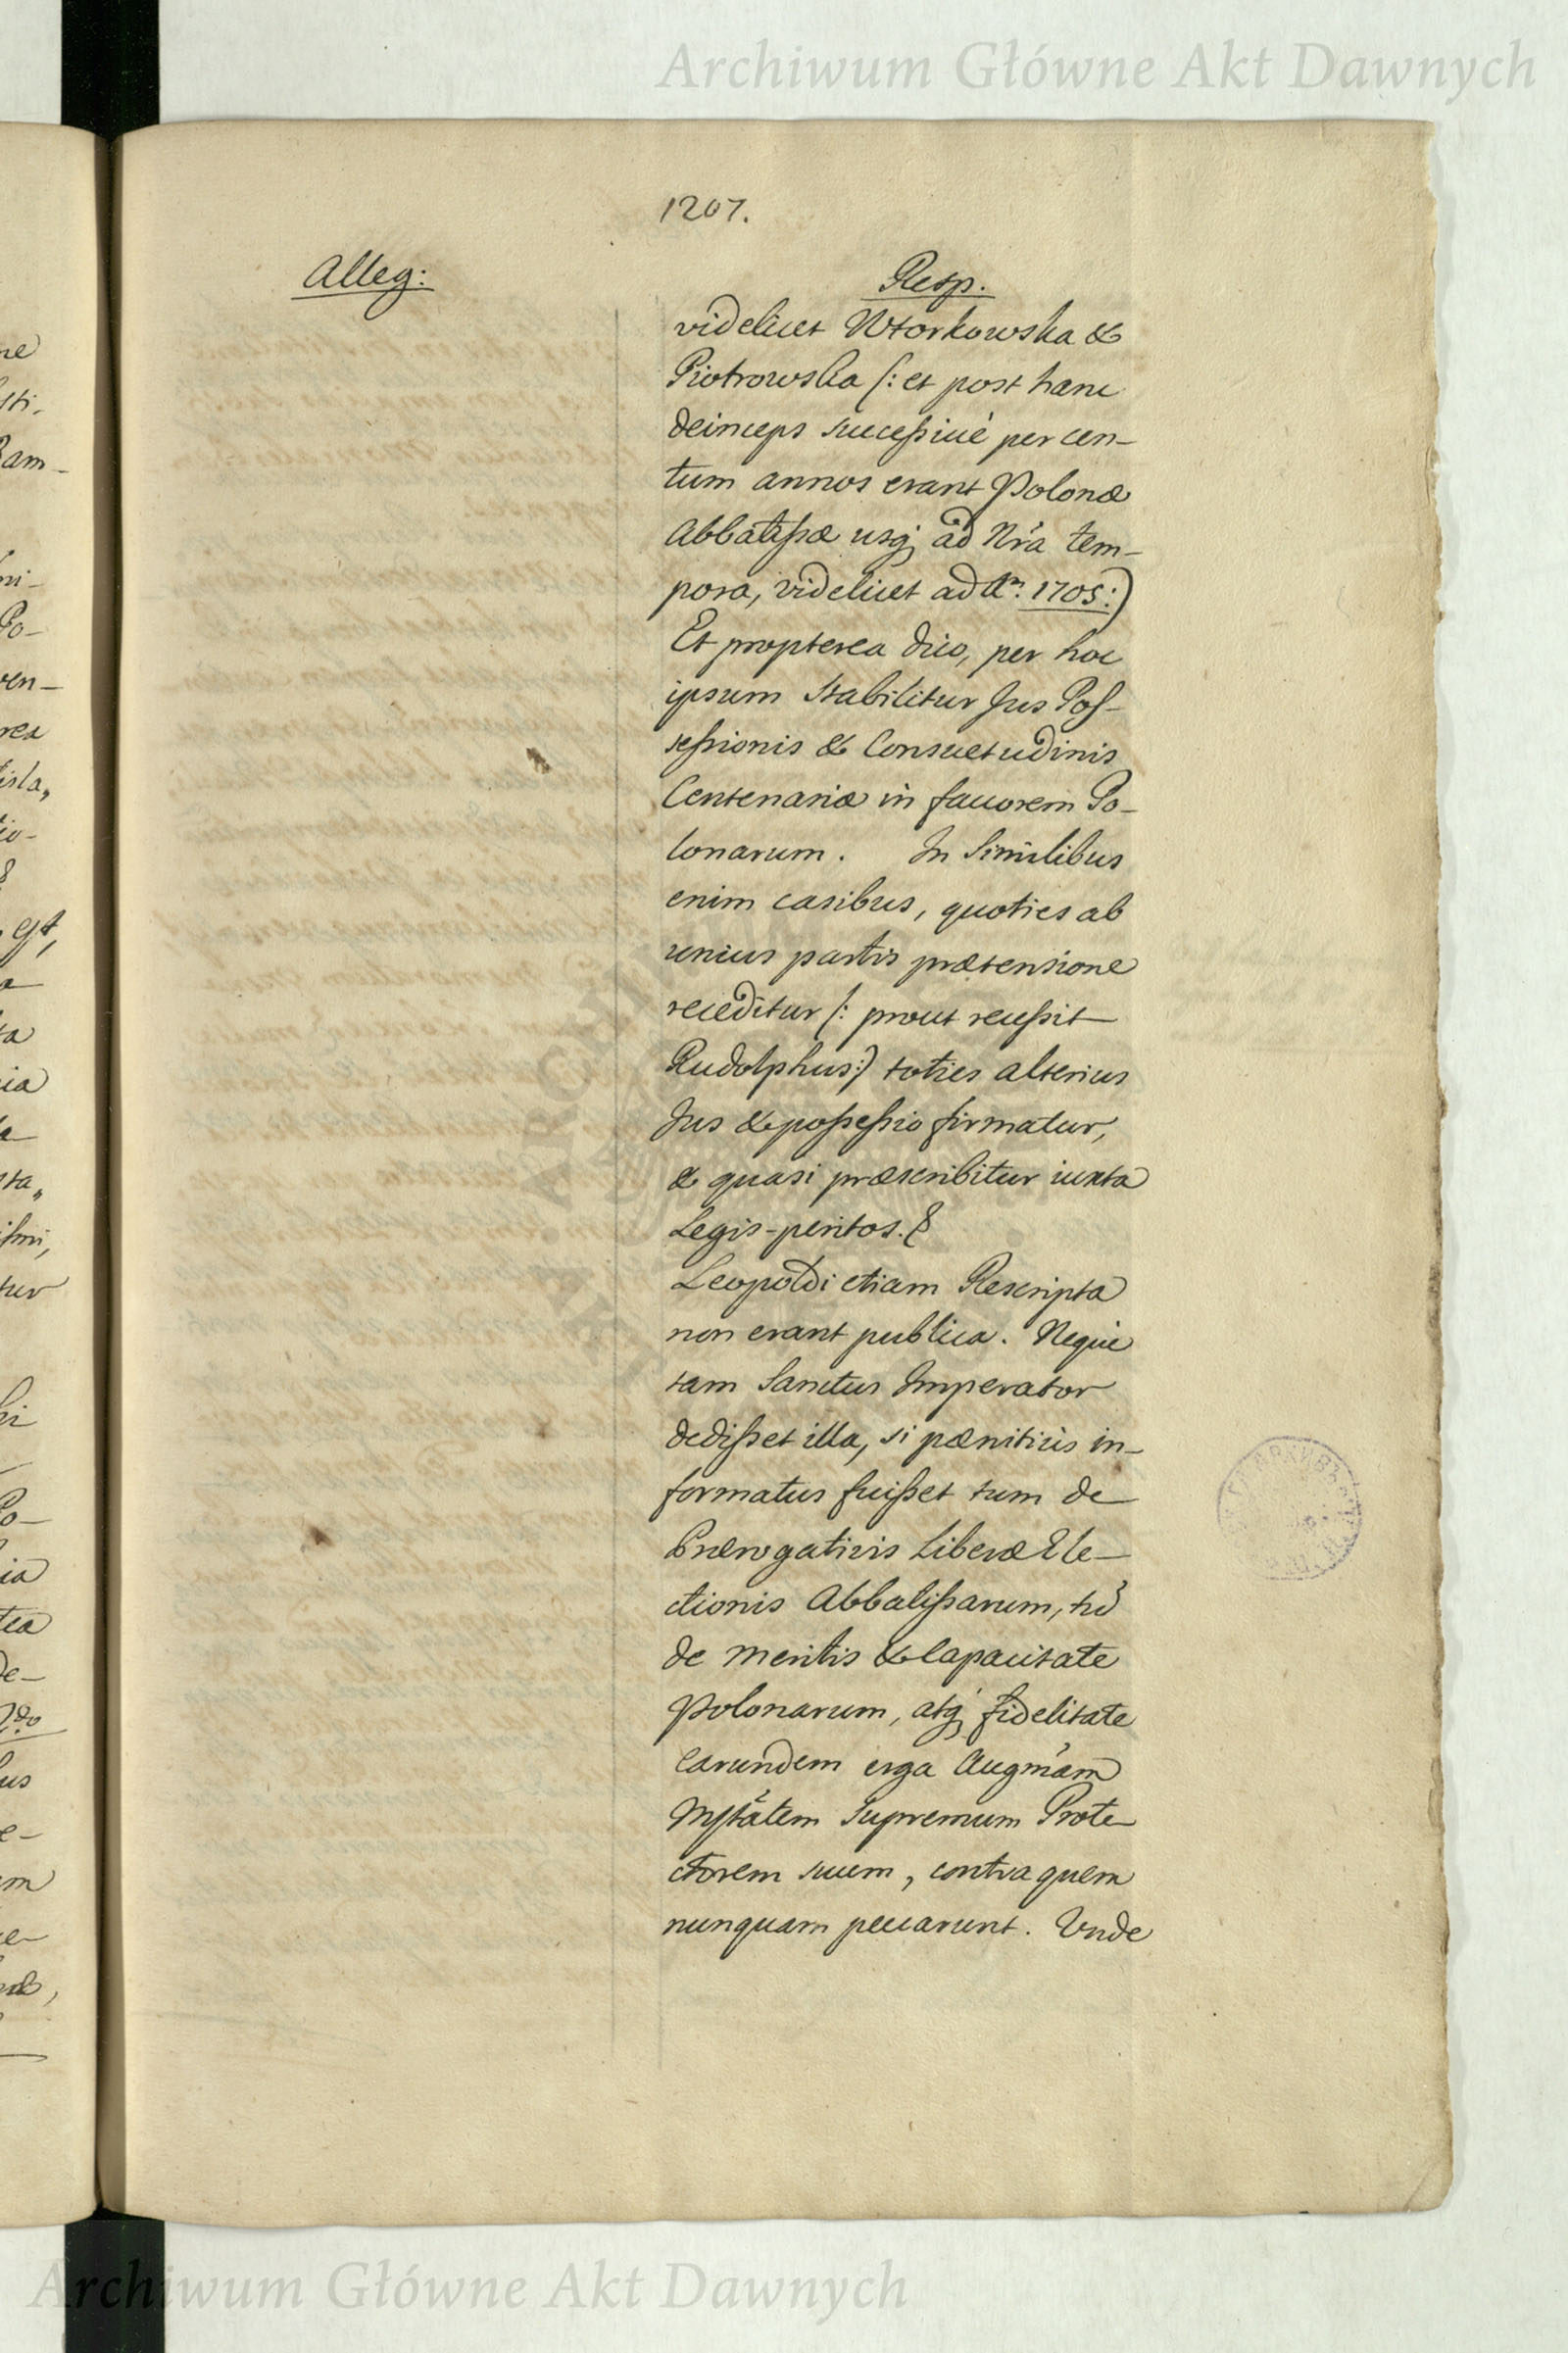 Archiwum Główne Akt Dawnych
1207.
Alleg:
Resp.
videlicet Wtorkowska &
Piotrowska (: et post hanc
deinceps successivè per cen-
tum annos erant Polonæ
Abbatissæ usq; ad Nra tem-
pora, videlicet ad Am. 1705:)
Et propterea dico, per hoc
ipsum stabilitur Jus Pos-
sessionis & Consuetudinis
Centenariæ in favorem Po-
lonarum. In similibus
enim casibus, quoties ab
unius partis prætensione
receditur (: prout recessit
Rudolphus:) toties alterius
Jus & possessio firmatur,
& quasi præscribitur iuxta
Legis-peritos.
Leopoldi etiam Rescripta
non erant publica. Neque
tam Sanctus Imperator
dedisset illa, si pænitiùs in-
formatus fuisset tum de
Prærogativis Liberæ Ele-
ctionis Abbatissarum, tū
de meritis & capacitate
Polonarum, atq; fidelitate
earundem erga Augmam
Mjtātem Supremum Prote-
ctorem suum, contra quem
nunquam peccarunt. Unde
Archiwum Główne Akt Dawnych